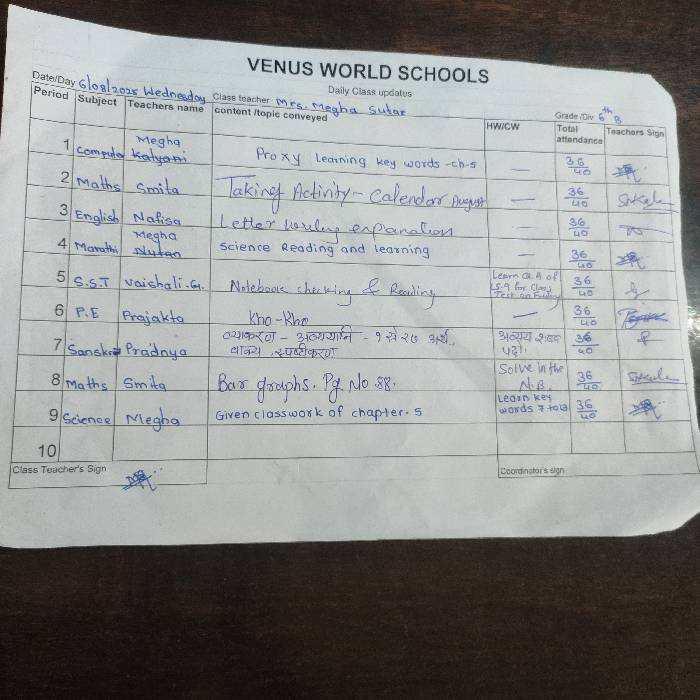 VENUS WORLD SCHOOLS
Daily Class updates
Date/Day 6/08/2025 Wednesday Class teacher Mrs. Megha Sutar Grade/Div 6th B
Period Subject Teachers name content /topic conveyed HW/CW Total attendance Teachers Sign
1 Computer Megha Kalyani Proxy learning key words -ch-5 — 36/40
2 Maths Smita Taking Activity - Calendar August — 36/40
3 English Nafisa Letter writing explanation — 36/40
4 Marathi Megha Nutan Science Reading and learning — 36/40
5 S.S.T Vaishali.G. Notebook checking & Reading Learn Q.A of L5-9 for Class Test on Friday 36/40
6 P.E Prajakta Kho-Kho — 36/40
7 Sanskrit Pradnya व्याकरण - अव्ययानि - १ से २७ अर्थ, वाक्य स्पष्टीकरण अव्यय शब्द पढो 36/40
8 Maths Smita Bar graphs. Pg No 88. Solve in the N.B. 36/40
9 Science Megha Given classwork of chapter-5 Learn key words 7 to 36/40
10
Class Teacher's Sign Coordinator's sign